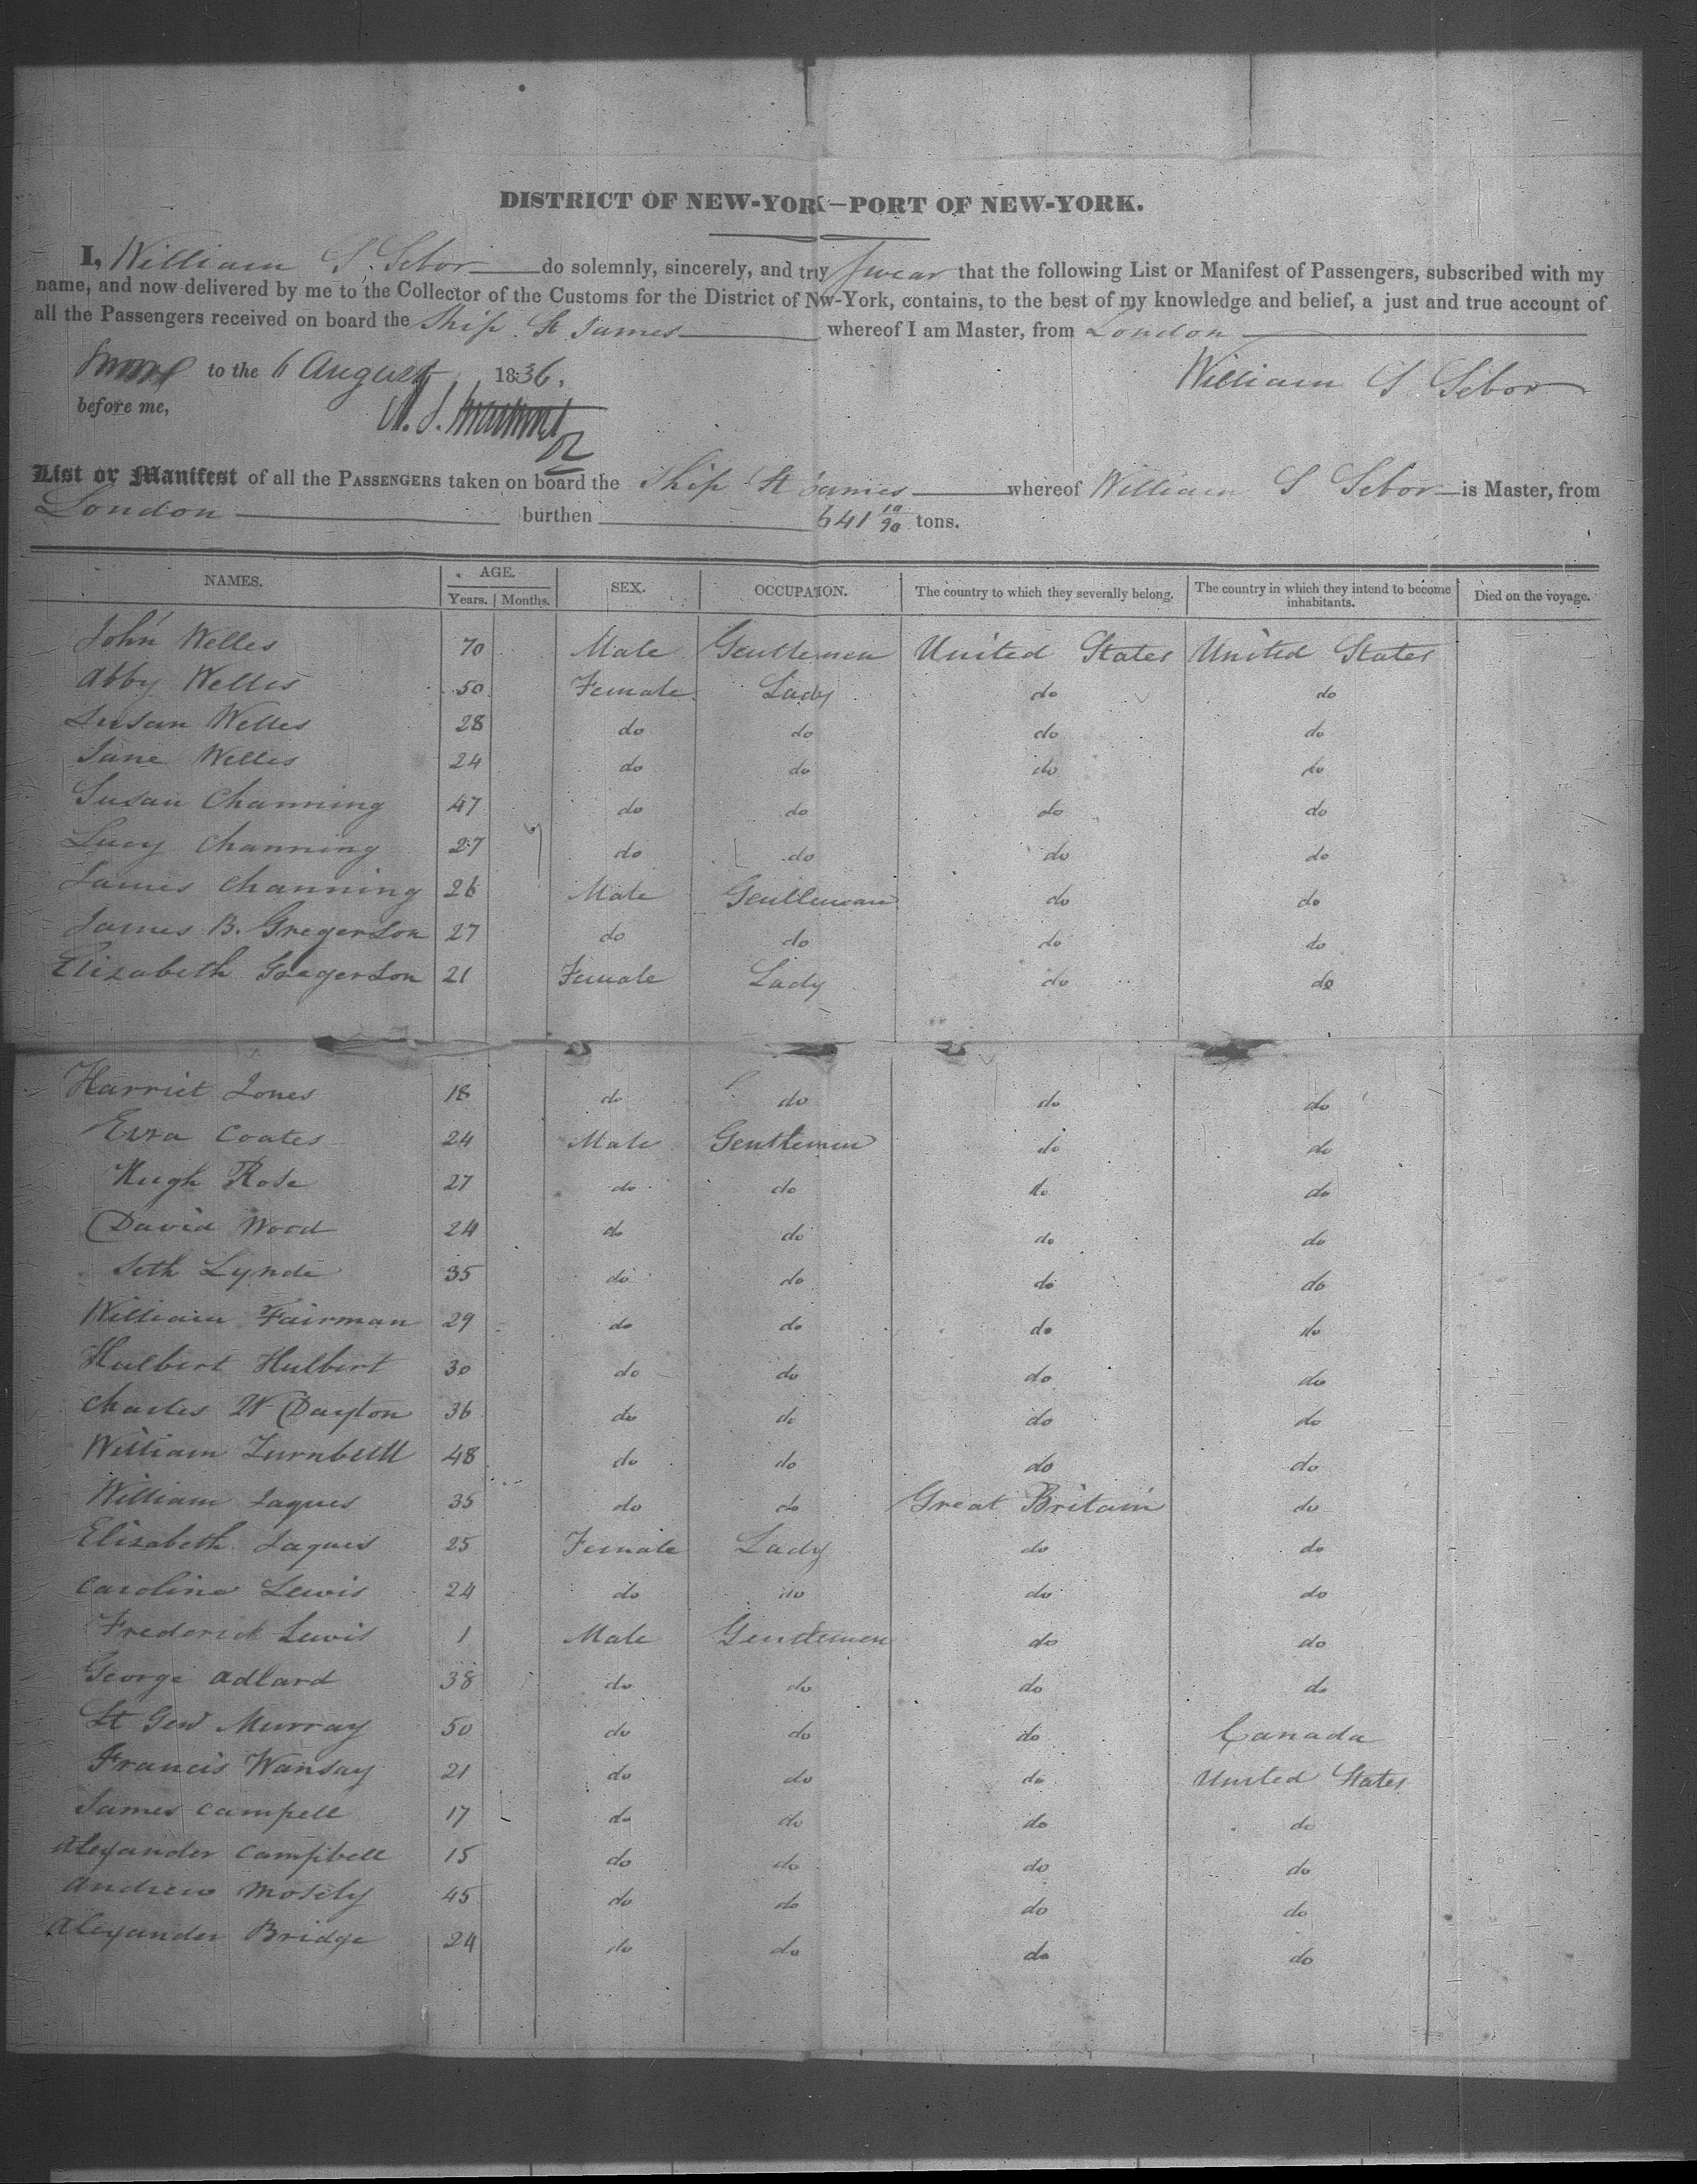 DISTRICT OF NEW-YORK—PORT OF NEW-YORK.
I, William S. Sebor do solemnly, sincerely, and truly swear that the following List or Manifest of Passengers, subscribed with my
name, and now delivered by me to the Collector of the Customs for the District of New-York, contains, to the best of my knowledge and belief, a just and true account of
all the Passengers received on board the Ship St James whereof I am Master, from London
Sworn to the 6 August 1836.
William S Sebor
before me,
List or Manifest of all the PASSENGERS taken on board the Ship St James whereof William S Sebor is Master, from
London burthen 641 10/90 tons.
NAMES. AGE. Years. Months. SEX. OCCUPATION. The country to which they severally belong. The country in which they intend to become inhabitants. Died on the voyage.
John Welles 70 Male Gentlemen United States United States
Abby Welles 50 Female Lady do do
Susan Welles 28 do do do do
Jane Welles 24 do do do do
Susan Channing 47 do do do do
Lucy Channing 27 do do do do
James Channing 26 Male Gentleman do do
James B. Gregerson 27 do do do do
Elizabeth Gregerson 21 Female Lady do do
Harriet Jones 18 do do do do
Ezra Coates 24 Male Gentlemen do do
Hugh Rose 27 do do do do
David Wood 24 do do do do
Seth Lynde 35 do do do do
William Fairman 29 do do do do
Hulbert Hulbert 30 do do do do
Charles W Dayton 36 do do do do
William Turnbull 48 do do do do
William Jaques 35 do do Great Britain do
Elizabeth Jaques 25 Female Lady do do
Caroline Lewis 24 do do do do
Frederick Lewis 1 Male Gentlemen do do
George Adlard 38 do do do do
Lt Genl Murray 50 do do do Canada
Francis Wansay 21 do do do United States
James Campell 17 do do do do
Alexander Campbell 15 do do do do
Andrew Mosely 45 do do do do
Alexander Bridge 24 do do do do